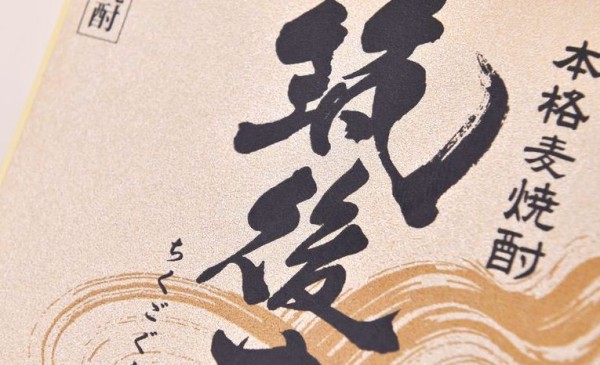 本格麦焼酎
筑後
ちくごぐ
酎